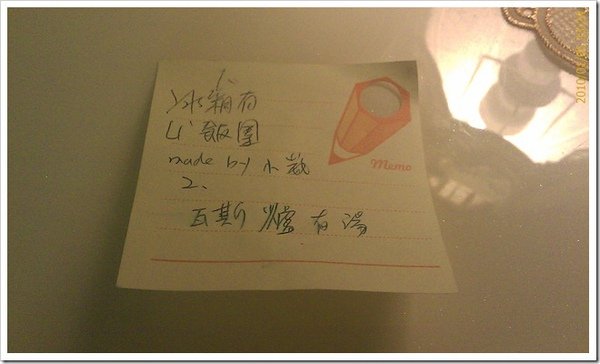 冰箱有
飯團
made by 小
2、
瓦斯爐有湯
Memo